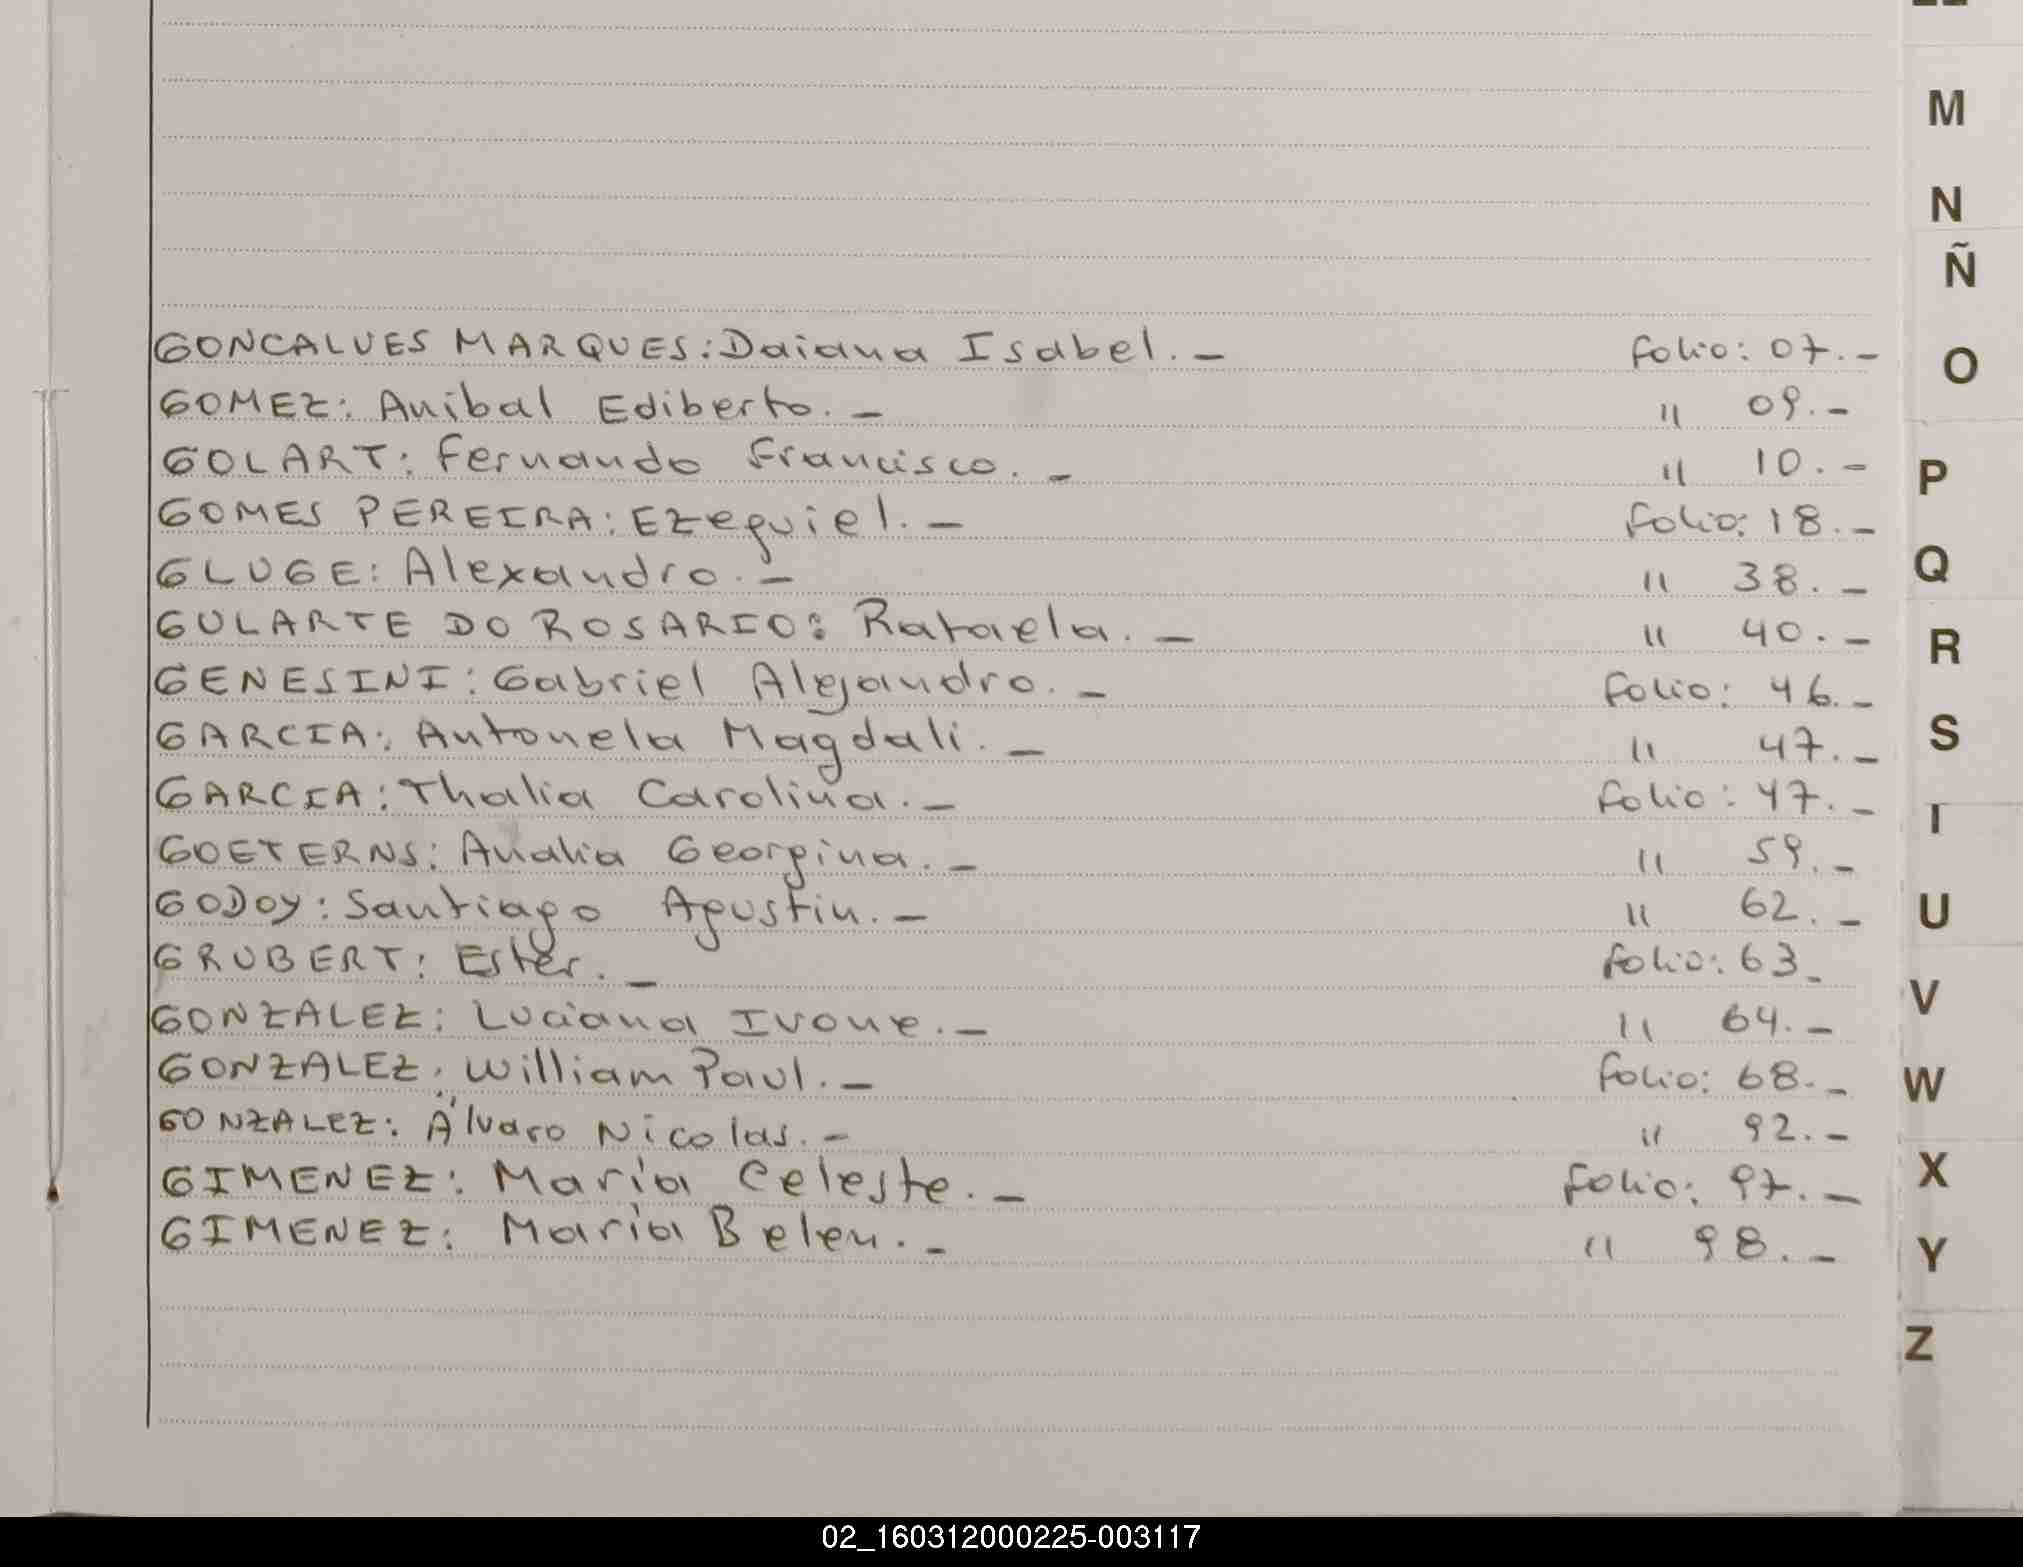 GONCALVES MARQUES: Daiana Isabel.- folio: 07.-
GOMEZ: Anibal Ediberto.- " 09.-
GOLART: Fernando Francisco.- " 10.-
GOMES PEREIRA: Ezequiel.- folio: 18.-
GLUGE: Alexandro.- " 38.-
GULARTE DO ROSARIO: Rafaela.- " 40.-
GENESINI: Gabriel Alejandro.- folio: 46.-
GARCIA: Antonela Magdali.- " 47.-
GARCIA: Thalia Carolina.- folio: 47.-
GOETERNS: Analia Georgina.- " 59.-
GODOY: Santiago Agustin.- " 62.-
GRUBERT: Ester.- folio: 63-
GONZALEZ: Luciana Ivone.- " 64.-
GONZALEZ: William Paul.- folio: 68.-
GONZALEZ: Álvaro Nicolas.- " 92.-
GIMENEZ: María Celeste.- folio: 97.-
GIMENEZ: María Belen.- " 98.-
M
N
Ñ
O
P
Q
R
S
T
U
V
W
X
Y
Z
02_160312000225-003117